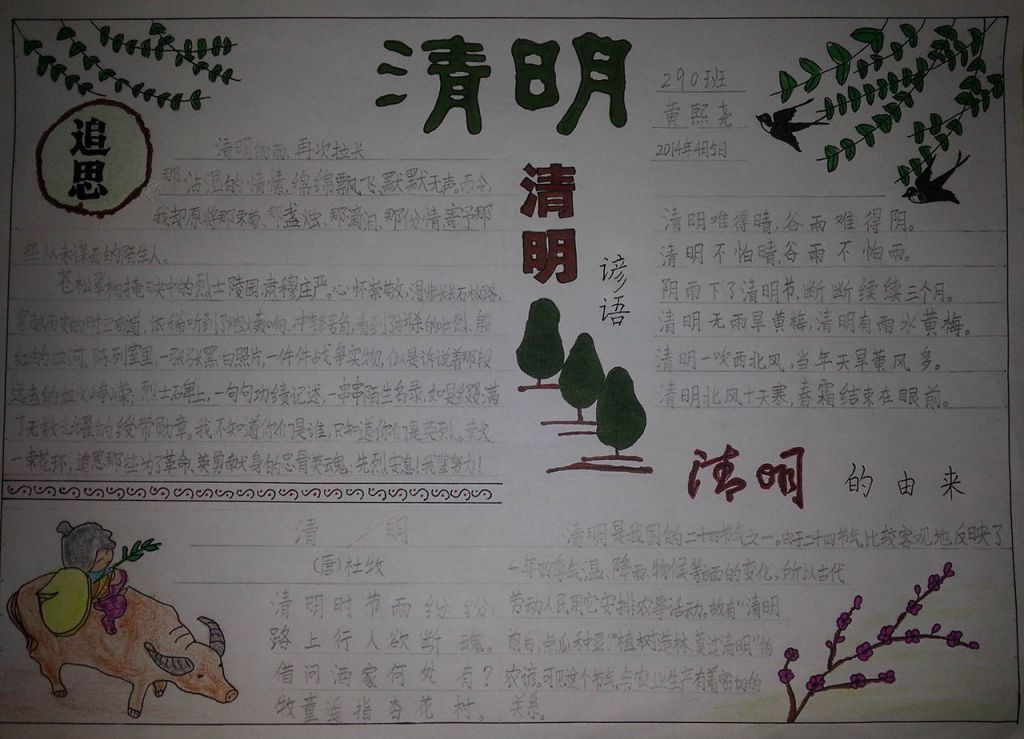 清明
290班
黄熙尧
2014年4月5日
追思
清明的雨,再次拉长
那沾湿的情愫,绵绵飘飞,默默无声,而今,
我却原将那束菊、那盏烛、那滴泪、那份情寄予那
些从未谋面的陌生人。
苍松翠柏掩映中的烈士陵园,肃穆庄严。心怀崇敬,漫步长长石板路,
红的血河。陈列室里,一张张黑白照片,一件件战争实物,似是诉说着那段
远去的血火峥嵘;烈士石碑上,一句句功绩记述,一串串陌生名录,如是缀满
了无数光耀的绶带勋章。我不知道你们是谁,只知道你们是英烈。
一束花环,追思那些为了革命,英勇献身的忠骨英魂、先烈安息!我辈努力!
清明
谚语
清明难得晴,谷雨难得阴。
清明不怕晴,谷雨不怕雨。
阴雨下了清明节,断断续续三个月。
清明无雨旱黄梅,清明有雨水黄梅。
清明一吹西北风,当年天旱黄风多。
清明北风十天寒,春霜结束在眼前。
清明
(唐)杜牧
清明时节雨纷纷,
路上行人欲断魂。
借问酒家何处有?
牧童遥指杏花村。
清明 的由来
清明是我国的二十四节气之一。由于二十四节气比较客观地反映了
一年四季气温、降雨、物候等方面的变化,所以古代
劳动人民用它安排农事活动。故有“清明
前后,点瓜种豆”“植树造林,莫过清明”的
农谚,可见这个节气与农业生产有着密切的
关系。